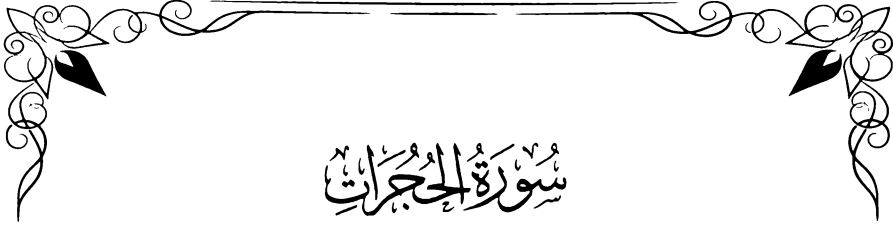 سُورَةُ الْحُجُرَاتِ